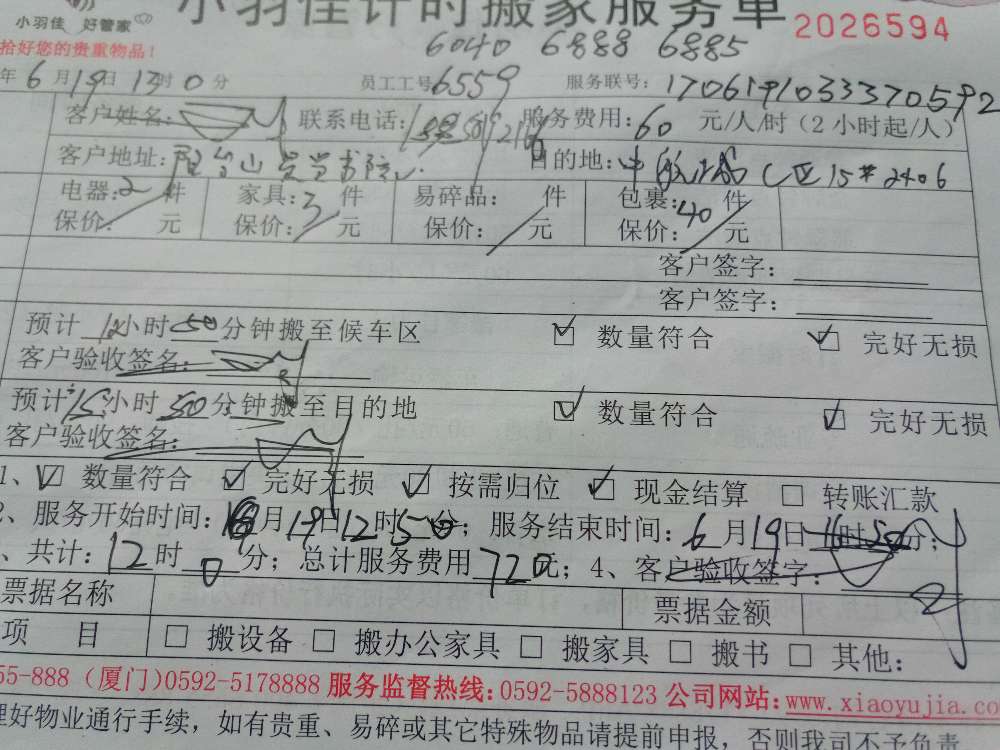 小羽佳计时搬家服务单
小羽佳 好管家 2026594
拾好您的贵重物品!
6040 6888 6885
年6月19日 时0分 员工工号6559 服务联号:
客户姓名: 联系电话: 服务费用:60 元/人/时(2小时起/人)
客户地址: 书院 目的地: C区15#2406
电器:2 件 家具:3 件 易碎品: 件 包裹:40 件
保价: 元 保价: 元 保价: 元 保价: 元
客户签字:
客户签字:
预计 小时50分钟搬至候车区 数量符合 完好无损
客户验收签名:
预计15小时50分钟搬至目的地 数量符合 完好无损
客户验收签名:
1、 数量符合 完好无损 按需归位 现金结算 转账汇款
2、服务开始时间: 月19日12时50分; 服务结束时间:6月19日16时50分;
、共计:12时0分; 总计服务费用720元; 4、客户验收签字:
票据名称 票据金额
项 目 搬设备 搬办公家具 搬家具 搬书 其他:
55-888 (厦门)0592-5178888 服务监督热线:0592-5888123 公司网站:www.xiaoyujia.co
理好物业通行手续,如有贵重、易碎或其它特殊物品请提前申报,否则我司不予负责